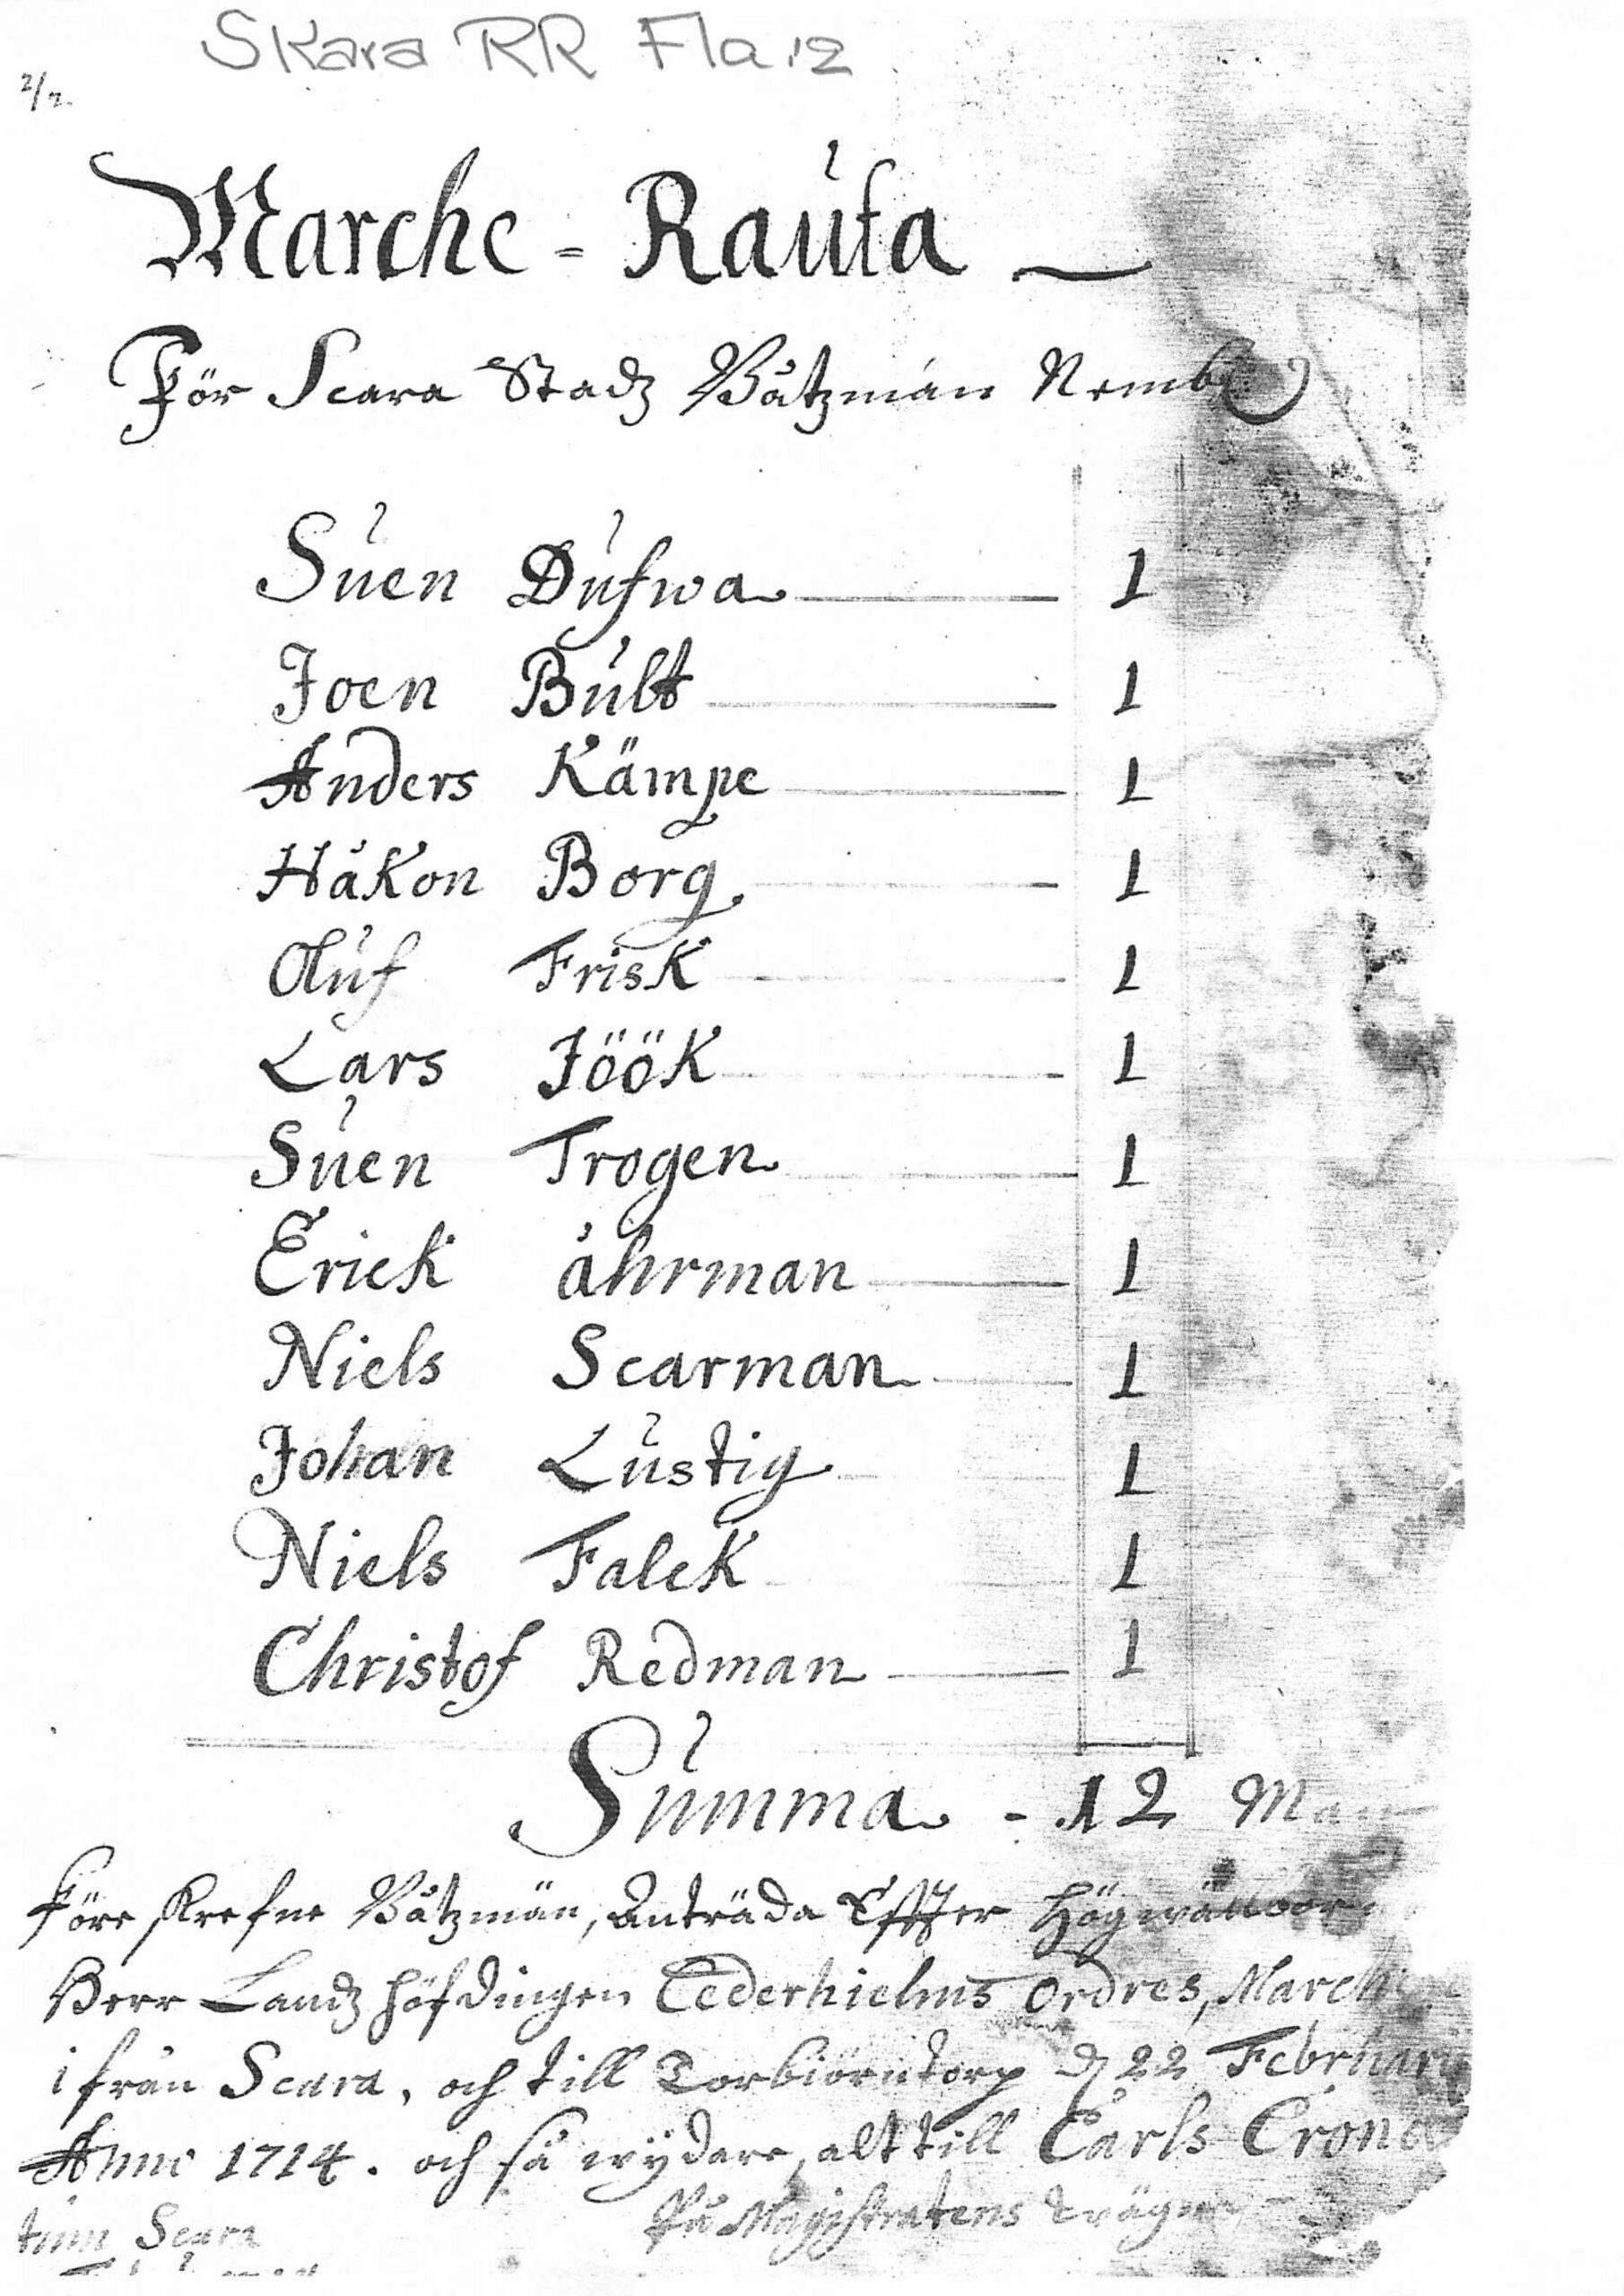 Skara RR FIa:2
2/2.
Marche = Rauta
För Scara Stadz Båtzmän Nembl
Suen Dufwa 1
Joen Bult 1
Anders Kämpe 1
Håkon Borg 1
Oluf Frisk 1
Lars Jöök 1
Suen Trogen 1
Erick åhrman 1
Niels Scarman 1
Johan Lustig 1
Niels Falck 1
Christof Redman 1
Summa - 12 Man
Föreskrefne Båtzmän, Anträda Effter
Herr Landzhöfdingen Cederhielms ordres, March
ifrån Scara, och till Torbiörntorp d 22 Februarij
Anno 1714. och så wydare, alt till Carls Crona
Scara På Magistratens wägnar